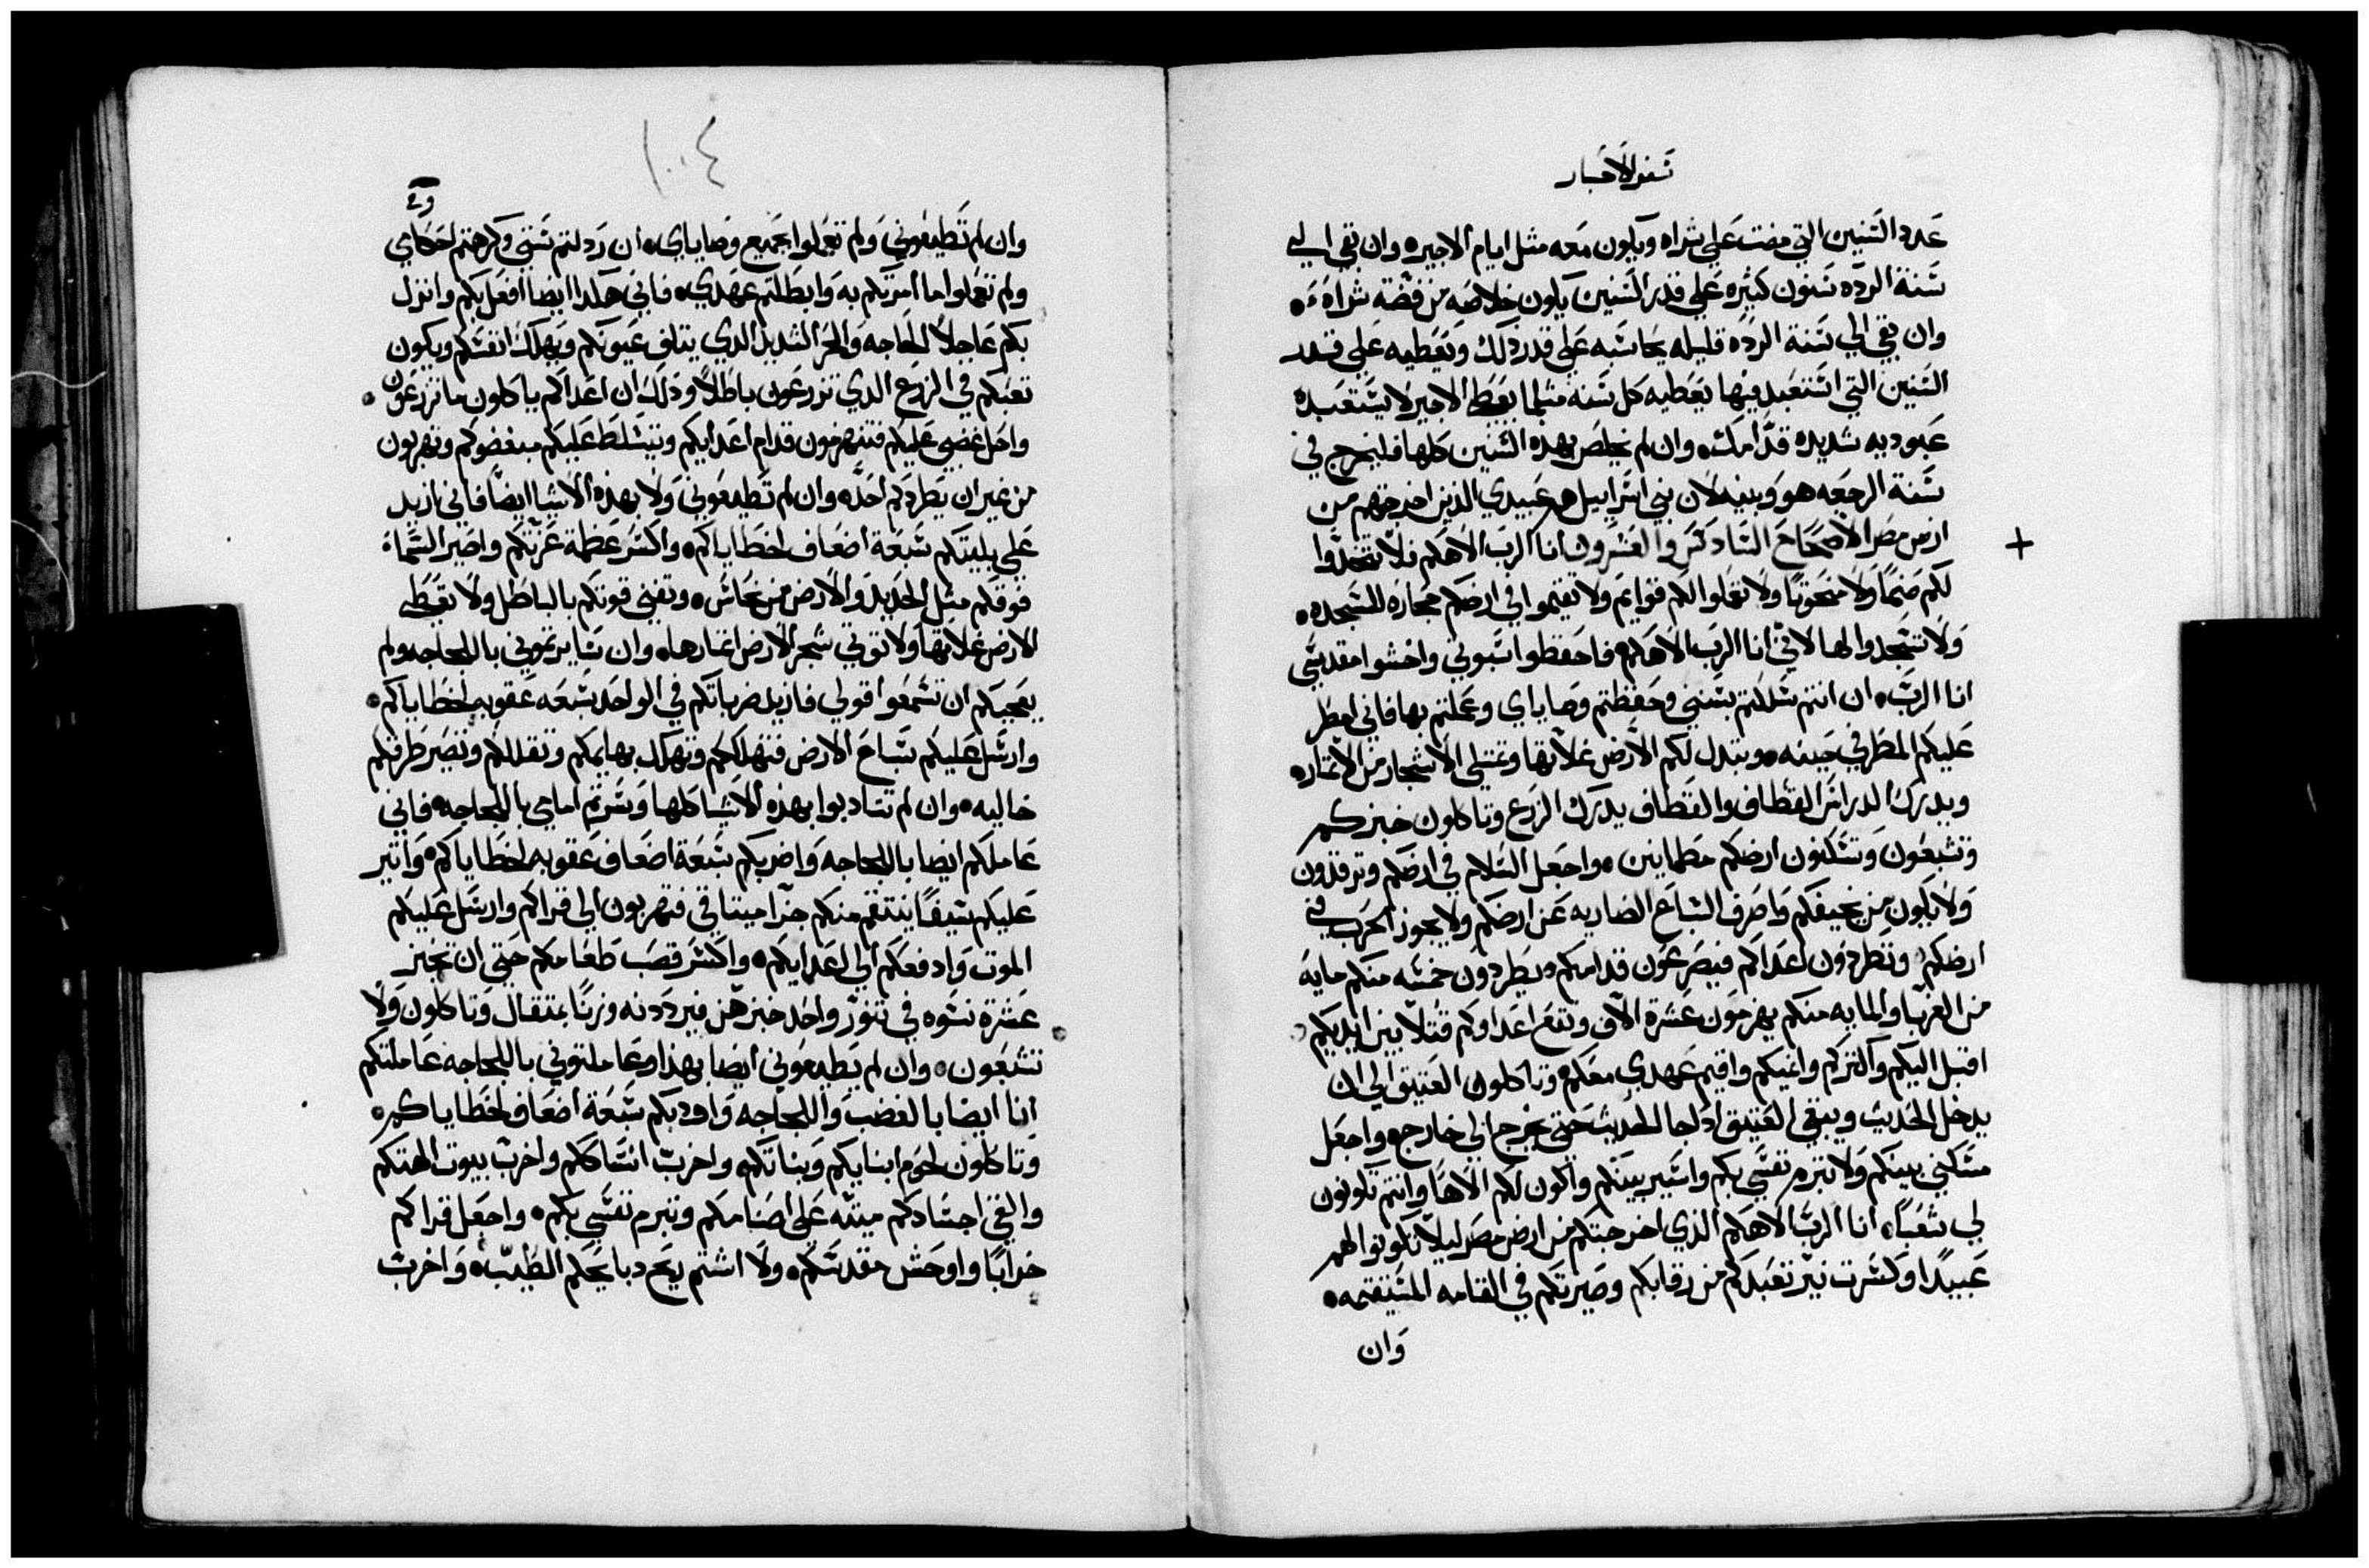 سفر الاحبار
عدد السنين التي مضت علي شراه ويكون معه مثل ايام الاجيره وان بقي الي
سنة الرده سنون كثيره علي قدر السنين يكون خلاصه من فضة شراه
وان بقي الي سنة الرده قليله يحاسبه علي قدر ذلك ويعطيه علي قدر
السنين التي استعبد فيها يعطيه كل سنه مثلما يعطي الاجير لا يستعبده
عبوديه شديده قدامك وان لم يخلص بهذه السنين كلها فليخرج في
سنة الرجعه هو وبنيه لان بني اسراييل هم عبيدي الذين اخرجتهم من
ارض مصر الاصحاح السادس والعشرون انا الرب الاهكم فلا تتخذوا
لكم صنمًا ولا منحوتًا ولا تعملوا لكم قوايم ولا تقيموا في ارضكم حجاره للسجده
ولا تسجدوا لها لاني انا الرب الاهكم فاحفظوا سبوتي واخشوا مقدسي
انا الرب ان انتم سلكتم بسنني وحفظتم وصاياي وعملتم بها فاني امطر
عليكم المطر في حينه وتبدل لكم الارض غلاتها وتمتلي الاشجار من الاثماره
ويدرك الدراس القطاف والقطاف يدرك الزرع وتاكلون خبزكم
وتشبعون وتسكنون ارضكم مطمانين واجعل السلام في ارضكم وترقدون
ولا يكون من يخيفكم واصرف السباع الضاريه عن ارضكم ولا يجوز الحرب في
ارضكم وتطردون اعداكم فيصرعون قدامكم ويطردون خمسه منكم مايه
من الغربا والمايه منكم يهزمون عشرة الاف وتقع اعداوكم قتلا بين ايديكم
اقبل اليكم واكثركم وانميكم واقيم عهدي معكم وتاكلون العتيق الي ان
يدخل الحديث ويبقي العتيق داخل الحديث حتي يخرج الي خارج واجعل
مسكني بينكم ولا تبرم نفسي بكم واسير بينكم واكون لكم الاهًا وانتم تكونون
لي شعبًا انا الرب الاهكم الذي اخرجتكم من ارض مصر ليلا تكونوا لهم
عبيدًا وكسرت نير تعبدكم من رقابكم وصيرتكم في القامه المستقيمه
وان
١٠٤
وان لم تطيعوني ولم تعملوا بجميع وصاياي ان رذلتم سنني وكرهتم احكامي
ولم تعملوا ما امرتكم به وابطلتم عهدي فاني هكذا ايضا افعل بكم وانزل
بكم عاجلًا الحاجه والحر الشديد الذي يتلف عيونكم ويهلك انفسكم ويكون
تعبكم في الزرع الذي تزرعون باطلًا وذلك ان اعداكم ياكلون ما تزرعون
واحل غضبي عليكم فتنهزمون قدام اعدايكم ويتسلط عليكم مبغضوكم وتهربون
من غير ان يطردكم احد وان لم تطيعوني ولا بهذه الاشيا ايضًا فاني ازيد
علي بليتكم سبعة اضعاف لخطاياكم واكسر عظمة عزتكم واصير السماء
فوقكم مثل الحديد والارض من نحاس وتفني قوتكم بالباطل ولا تعطي
الارض غلاتها ولا توتي شجر الارض اثمارها وان سايرتموني باللجاجه ولم
يعجبكم ان تسمعوا قولي فازيد ضرباتكم في الواحد سبعه عقوبه لخطاياكم
وارسل عليكم سباع الارض فتهلككم وتهلك بهايمكم وتقللكم وتصير طرقكم
خاليه وان لم تتادبوا بهذه الاشيا كلها وسرتم امامي باللجاجه فاني
عاملكم ايضا باللجاجه واضربكم سبعة اضعاف عقوبه لخطاياكم واثير
عليكم سيفًا ينتقم منكم جزا ميثاقي فتهربون الي قراكم وارسل عليكم
الموت وادفعكم الي اعدايكم واكسر قصب طعامكم حتي ان تخبز
عشرة نسوه في تنور واحد خبزهن فيرددنه وزنًا بمثقال وتاكلون ولا
تشبعون وان لم تطيعوني ايضا بهذا وعاملتوني باللجاجه عاملتكم
انا ايضا بالغضب واللجاجه واودبكم سبعة اضعاف لخطاياكم
وتاكلون لحوم ابنايكم وبناتكم واخرب انساككم واخرب بيوت الهتكم
والقي اجسادكم ميته علي اصنامكم وتبرم نفسي بكم واجعل قراكم
خرابًا واوحش مقدسكم ولا اشتم ريح دبايحكم الطيب واخرب